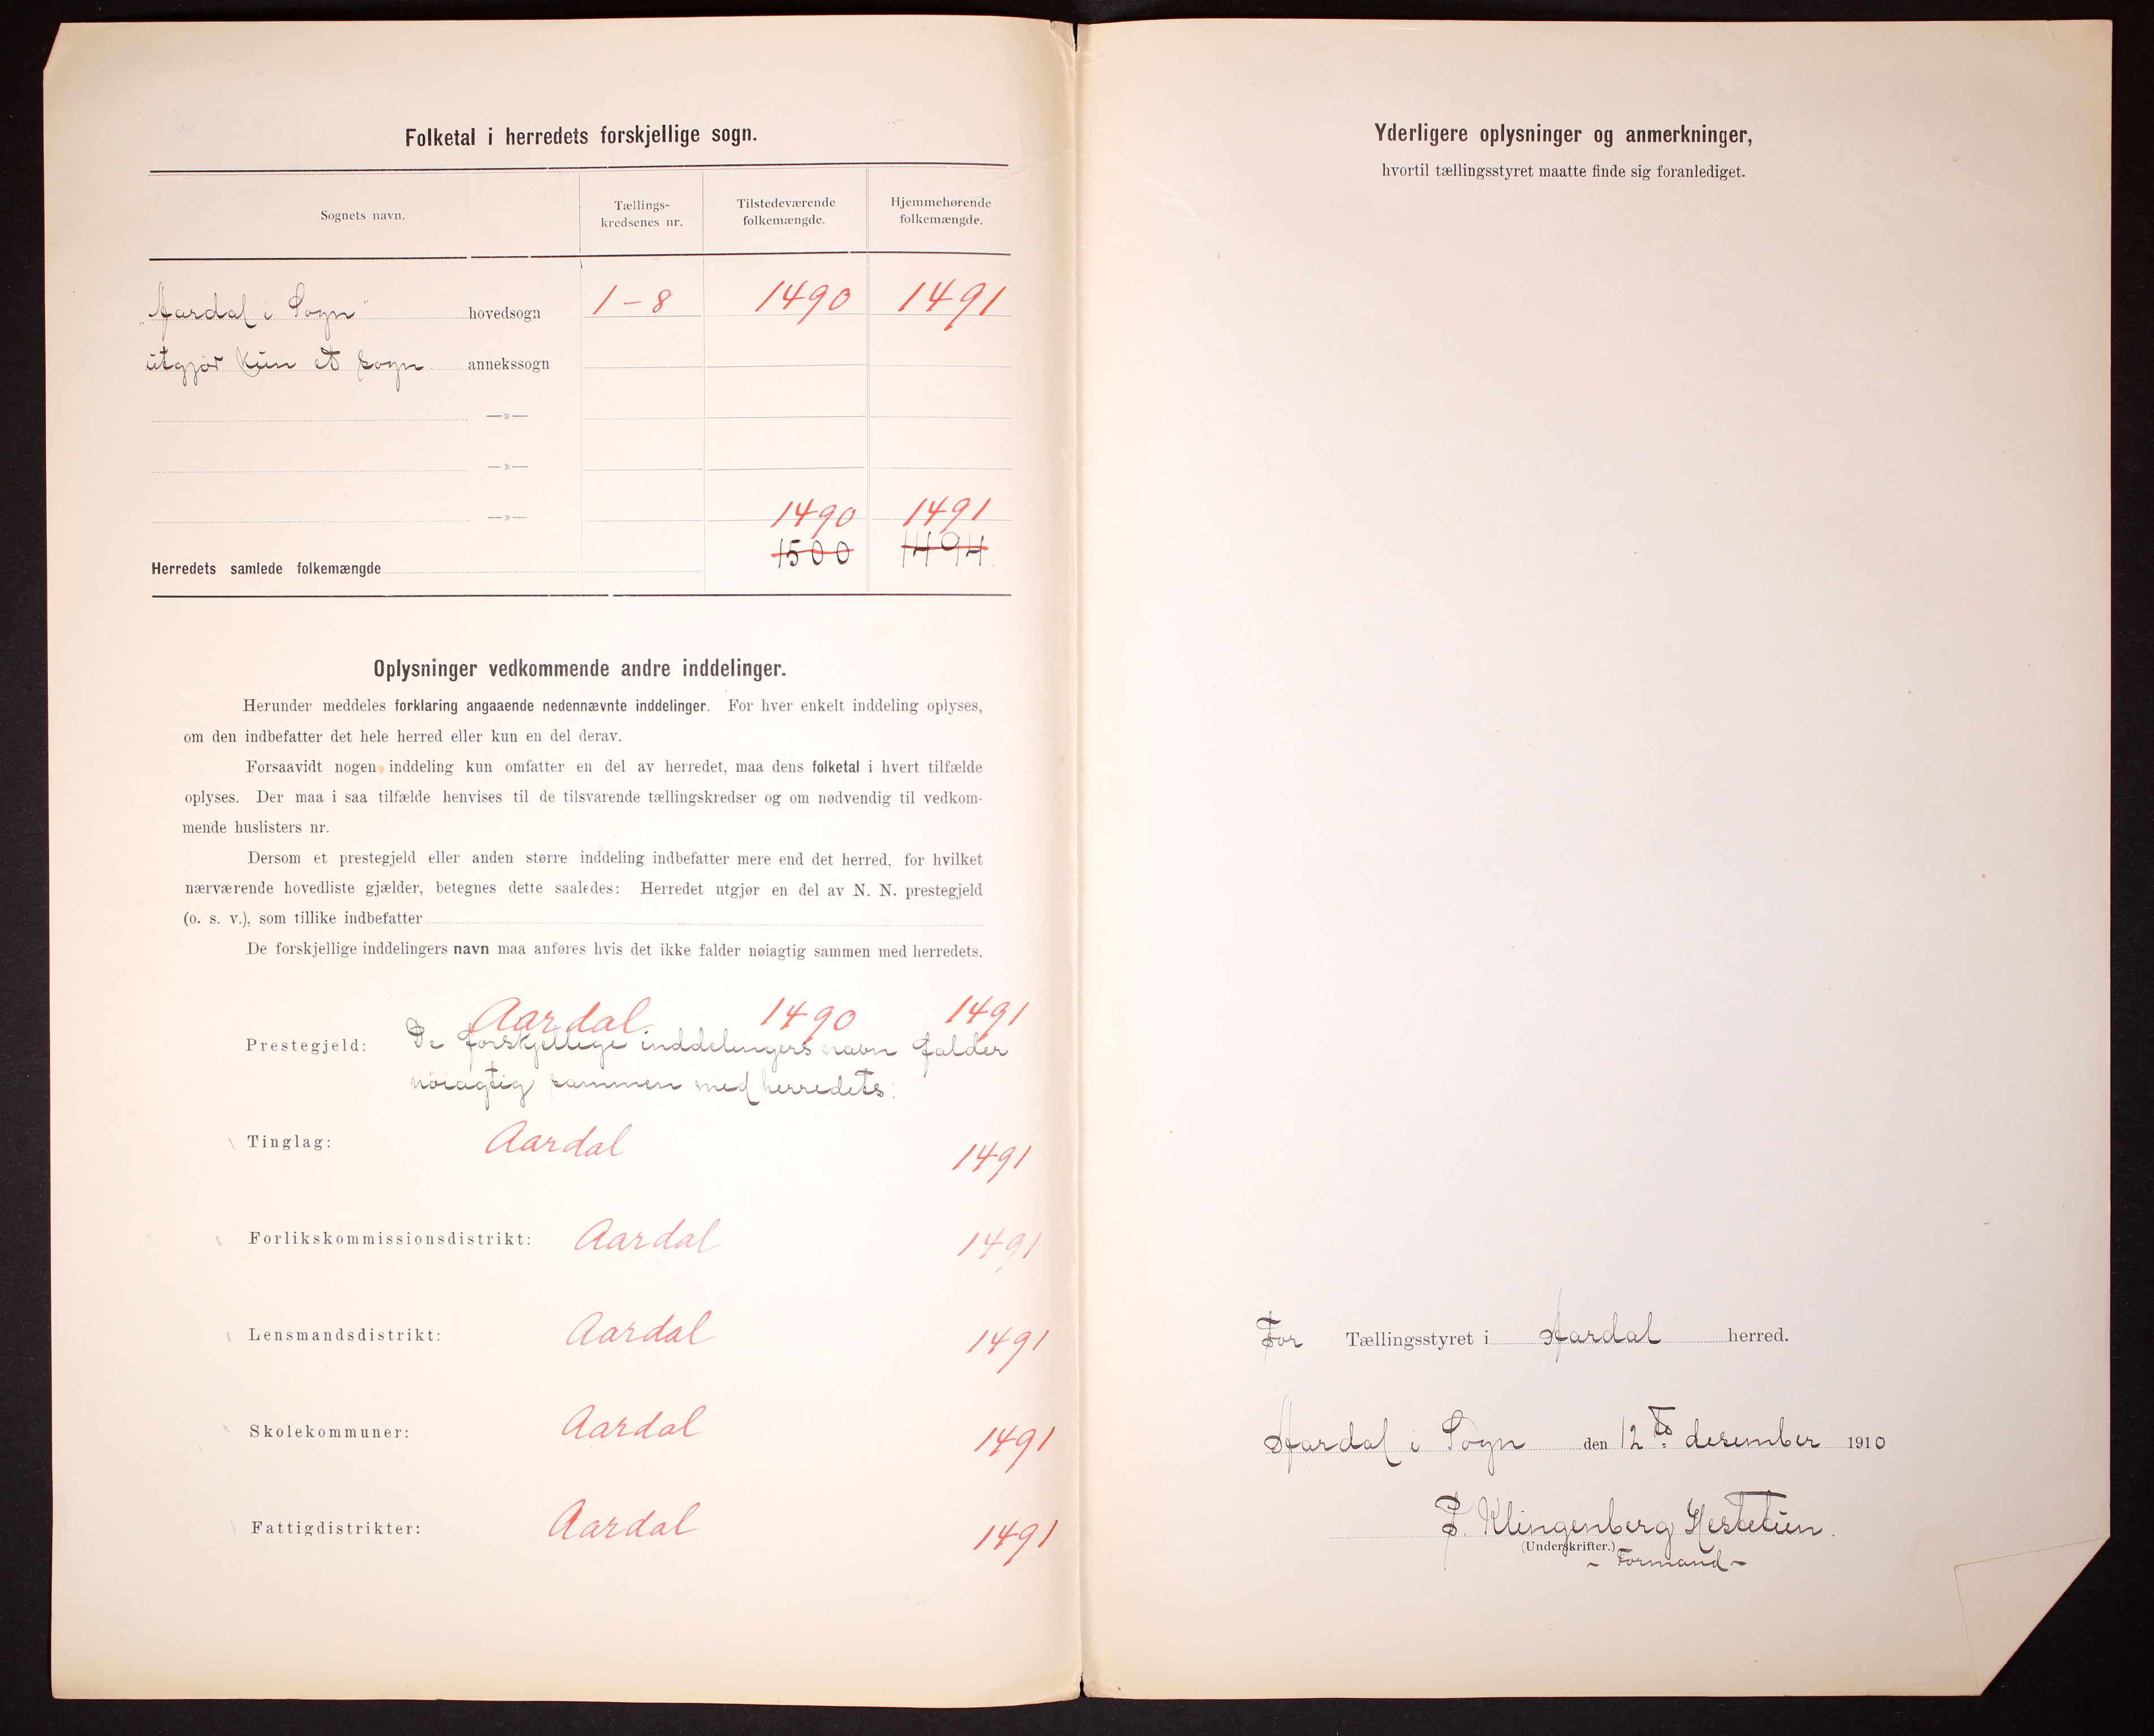 Folketal i herredets forskjellige sogn.
Sognets navn.
Tællings-
kredsenes nr.
Tilstedeværende
folkemængde.
Hjemmehørende
folkemængde.
„Aardal i Sogn" hovedsogn 1-8 1490 1491
utgjør kun et sogn annekssogn
—»—
—»—
—»— 1490 1491
Herredets samlede folkemængde 1500 1494
Oplysninger vedkommende andre inddelinger.
Herunder meddeles forklaring angaaende nedennævnte inddelinger. For hver enkelt inddeling oplyses,
om den indbefatter det hele herred eller kun en del derav.
Forsaavidt nogen inddeling kun omfatter en del av herredet, maa dens folketal i hvert tilfælde
oplyses. Der maa i saa tilfælde henvises til de tilsvarende tællingskredser og om nødvendig til vedkom-
mende huslisters nr.
Dersom et prestegjeld eller anden større inddeling indbefatter mere end det herred, for hvilket
nærværende hovedliste gjælder, betegnes dette saaledes: Herredet utgjør en del av N. N. prestegjeld
(o. s. v.), som tillike indbefatter
De forskjellige inddelingers navn maa anføres hvis det ikke falder nøiagtig sammen med herredets.
Aardal. 1490 1491
Prestegjeld: De forskjellige inddelingers navn falder
nöiagtig sammen med herredets.
Tinglag: Aardal 1491
Forlikskommissionsdistrikt: Aardal 1491
Lensmandsdistrikt: Aardal 1491
Skolekommuner: Aardal 1491
Fattigdistrikter: Aardal 1491
Yderligere oplysninger og anmerkninger,
hvortil tællingsstyret maatte finde sig foranlediget.
For Tællingsstyret i Aardal herred.
Aardal i Sogn den 12te desember 1910
P. Klingenberg Hestetun.
(Underskrifter.)
- Formand -